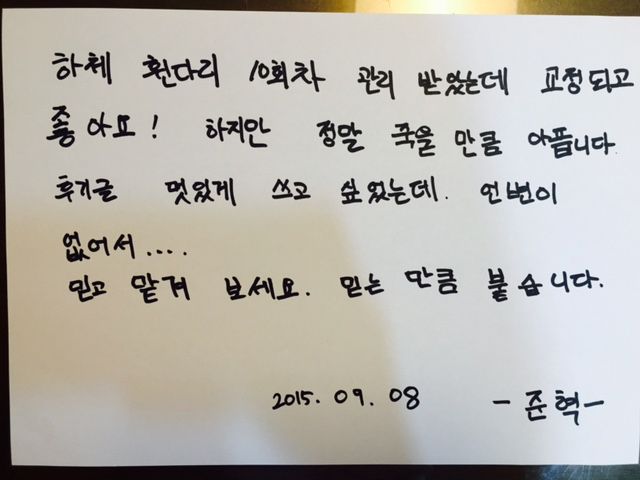 하체 휜다리 10회차 관리 받았는데 교정되고
좋아요! 하지만 정말 죽을 만큼 아픕니다
후기글 멋있게 쓰고 싶었는데. 언변이
없어서....
믿고 맡겨 보세요. 믿는 만큼 붙습니다.
2015. 09. 08 - 준혁 -